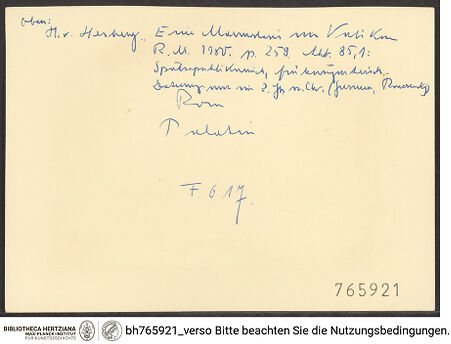 oben:
H. v. Hesberg, Eine Marmorbasis im Vatikan
R.M. 1980. p. 259. Abb. 85,1:
Spätrepublikanisch, frühaugusteisch,
Datierung nur ins 2. Jh. n. Chr.
Rom
Palatin
F. 617.
765921
BIBLIOTHECA HERTZIANA
MAX-PLANCK-INSTITUT
FÜR KUNSTGESCHICHTE
bh765921_verso Bitte beachten Sie die Nutzungsbedingungen.